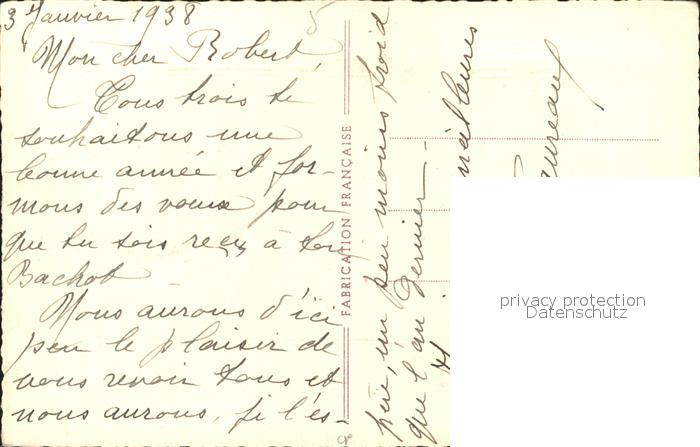 3 Janvier 1938
Mon cher Robert,
Tous trois te
souhaitons une
bonne année et for-
mons des vœux pour
que tu sois reçu à ton
Bachot
Nous aurons d'ici
peu le plaisir de
vous revoir tous et
nous aurons, je l'es-
père, un peu moins froid
que l'an dernier -
FABRICATION FRANÇAISE
privacy protection
Datenschutz